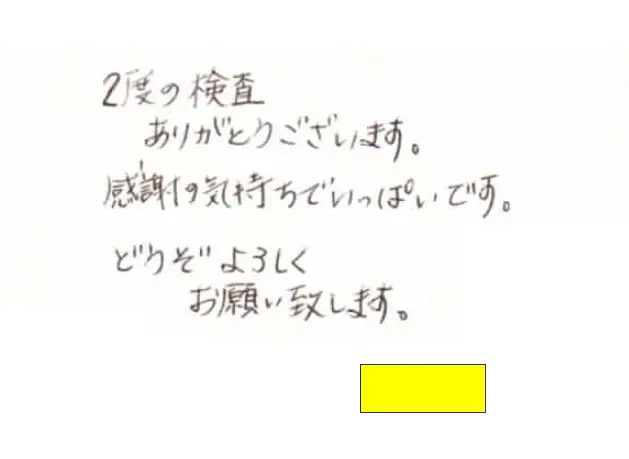 2度の検査
ありがとうございます。
感謝の気持ちでいっぱいです。
どうぞよろしく
お願い致します。